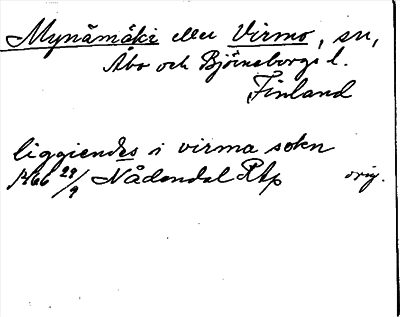 Mynämäki eller Virmo, sn,
Åbo och Björneborgs l.
Finland
liggiendes i virma sokn
1466 29/9 Nådendal Rtp orig.